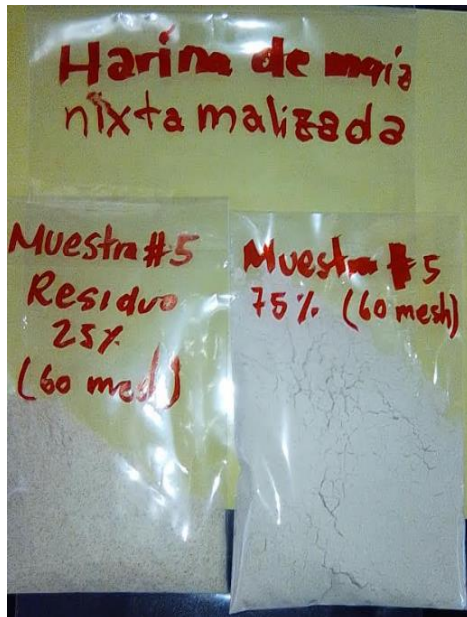 Harina de maiz
nixtamalizada
Muestra #5
Residuo
25%
(60 mesh)
Muestra #5
75% (60 mesh)